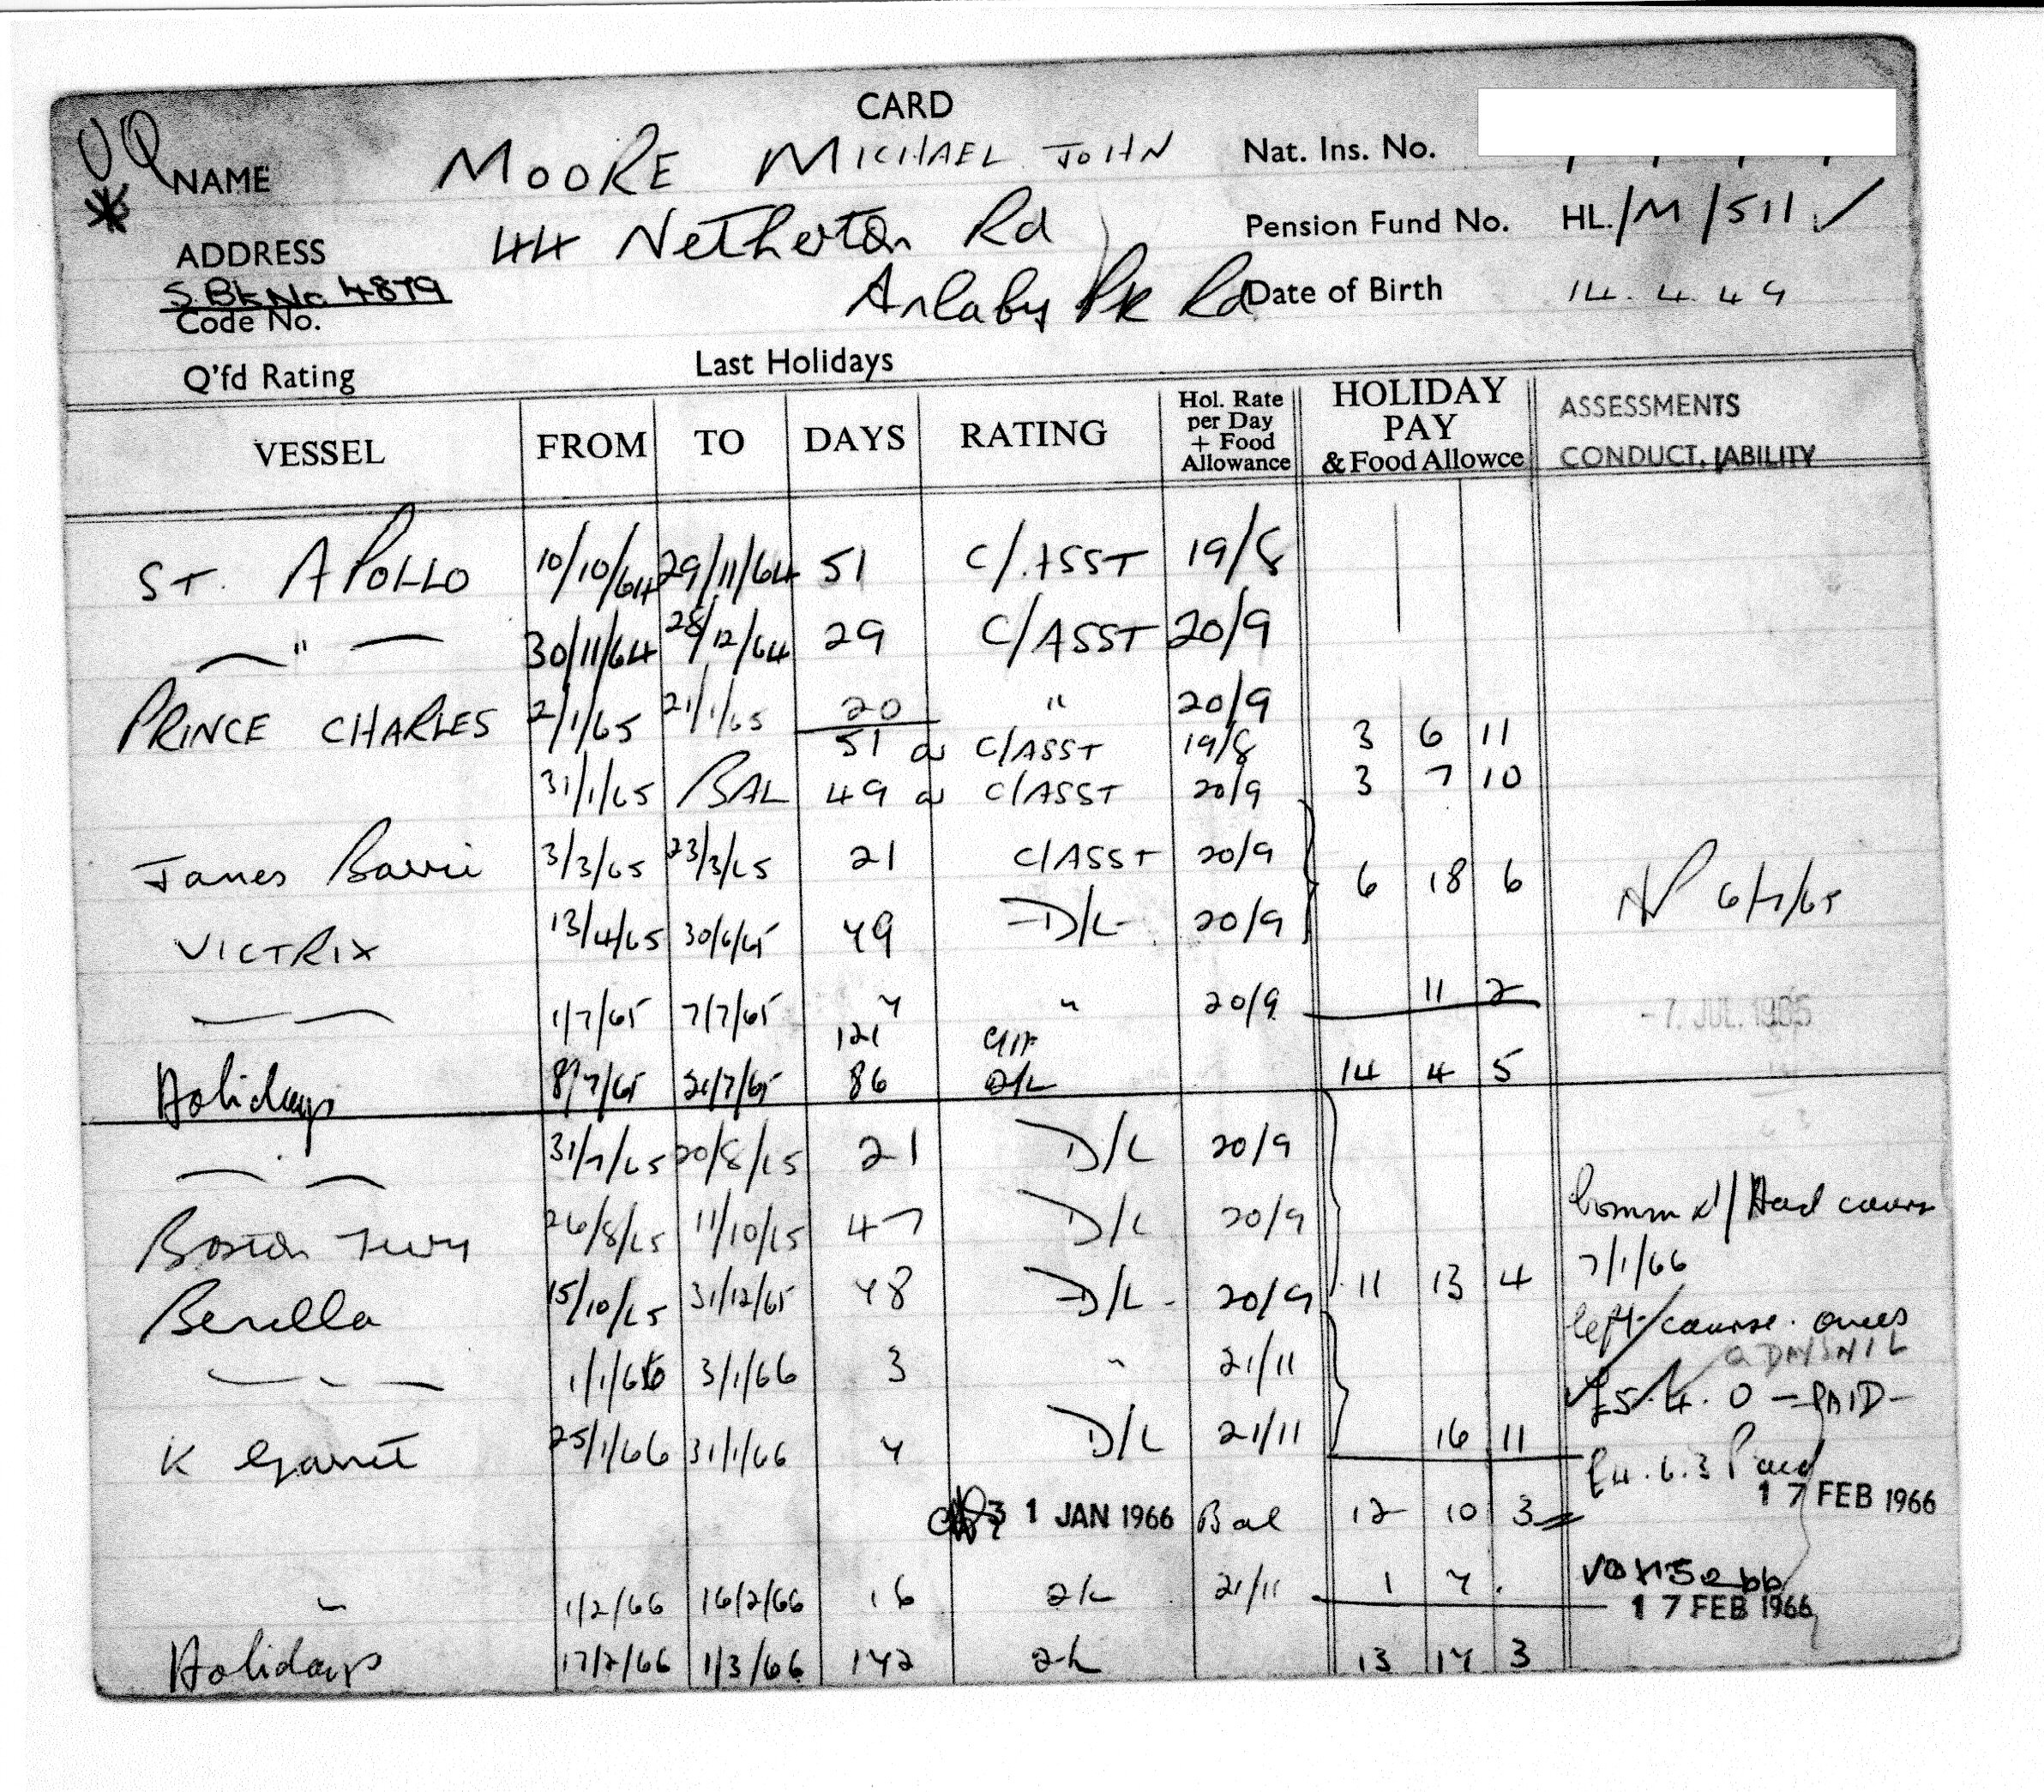 CARD
UQ
NAME MOORE MICHAEL JOHN Nat. Ins. No.
* ADDRESS 44 Netherton Rd Pension Fund No. HL./M/511 ✓
S. Bk No 4879 Anlaby Pk Rd Date of Birth 14.4.49
Code No.
Q'fd Rating Last Holidays
VESSEL FROM TO DAYS RATING Hol. Rate per Day + Food Allowance HOLIDAY PAY & Food Allowce ASSESSMENTS CONDUCT, ABILITY
ST. APOLLO 10/10/64 29/11/64 51 C/ASST 19/8
— " — 30/11/64 28/12/64 29 C/ASST 20/9
PRINCE CHARLES 2/1/65 21/1/65 20 " 20/9
51 as C/ASST 19/8 3 6 11
31/1/65 BAL 49 as C/ASST 20/9 3 7 10
James Barrie 3/3/65 23/3/65 21 C/ASST 20/9
6 18 6
VICTRIX 13/4/65 30/6/65 79 D/L 20/9 6/7/65
— — 1/7/65 7/7/65 7 " 20/9 11 2 -7. JUL. 1965
121
Holidays 8/7/65 21/7/65 86 D/L 14 4 5
— " — 31/7/65 20/8/65 21 D/L 20/9
Boston 26/8/65 11/10/65 47 D/L 20/9 course
7/1/66
Benella 15/10/65 31/12/65 78 D/L - 20/9 11 13 4
left course. owes
— - — 1/1/66 3/1/66 3 " 21/11
£5.4.0 — PAID —
K Garnet 25/1/66 31/1/66 7 D/L 21/11 16 11
£4.6.3 Paid
17 FEB 1966
31 JAN 1966 Bal 12 10 3
" 1/2/66 16/2/66 16 D/L 21/11 1 7 .
17 FEB 1966
Holidays 17/2/66 1/3/66 172 D/L 13 17 3